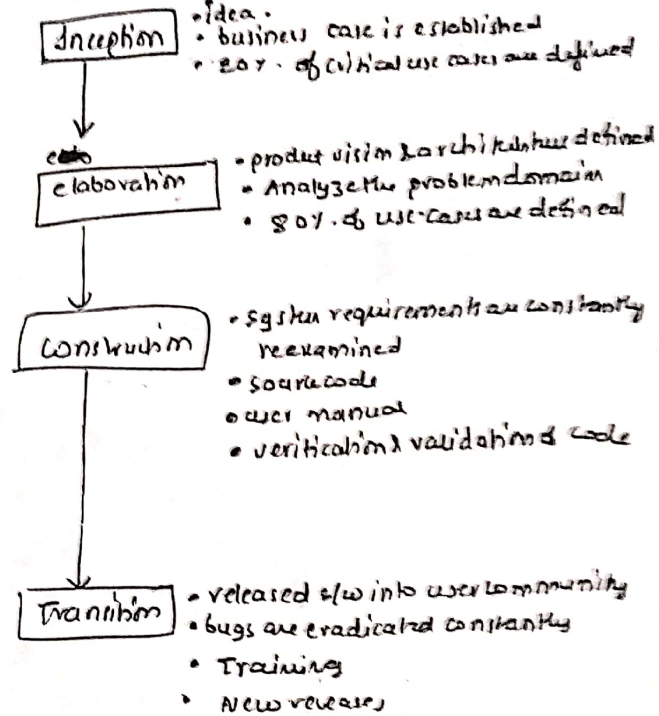 Inception
• idea.
• business case is established
• 20%. of critical use cases are defined
elaboration
• product vision & architecture defined
• Analyze the problem domain
• 80%. of use-cases are defined
Construction
• System requirements are constantly
reexamined
• source code
• user manual
• verification & validation of code
Transition
• released s/w into user community
• bugs are eradicated constantly
• Training
• New releases